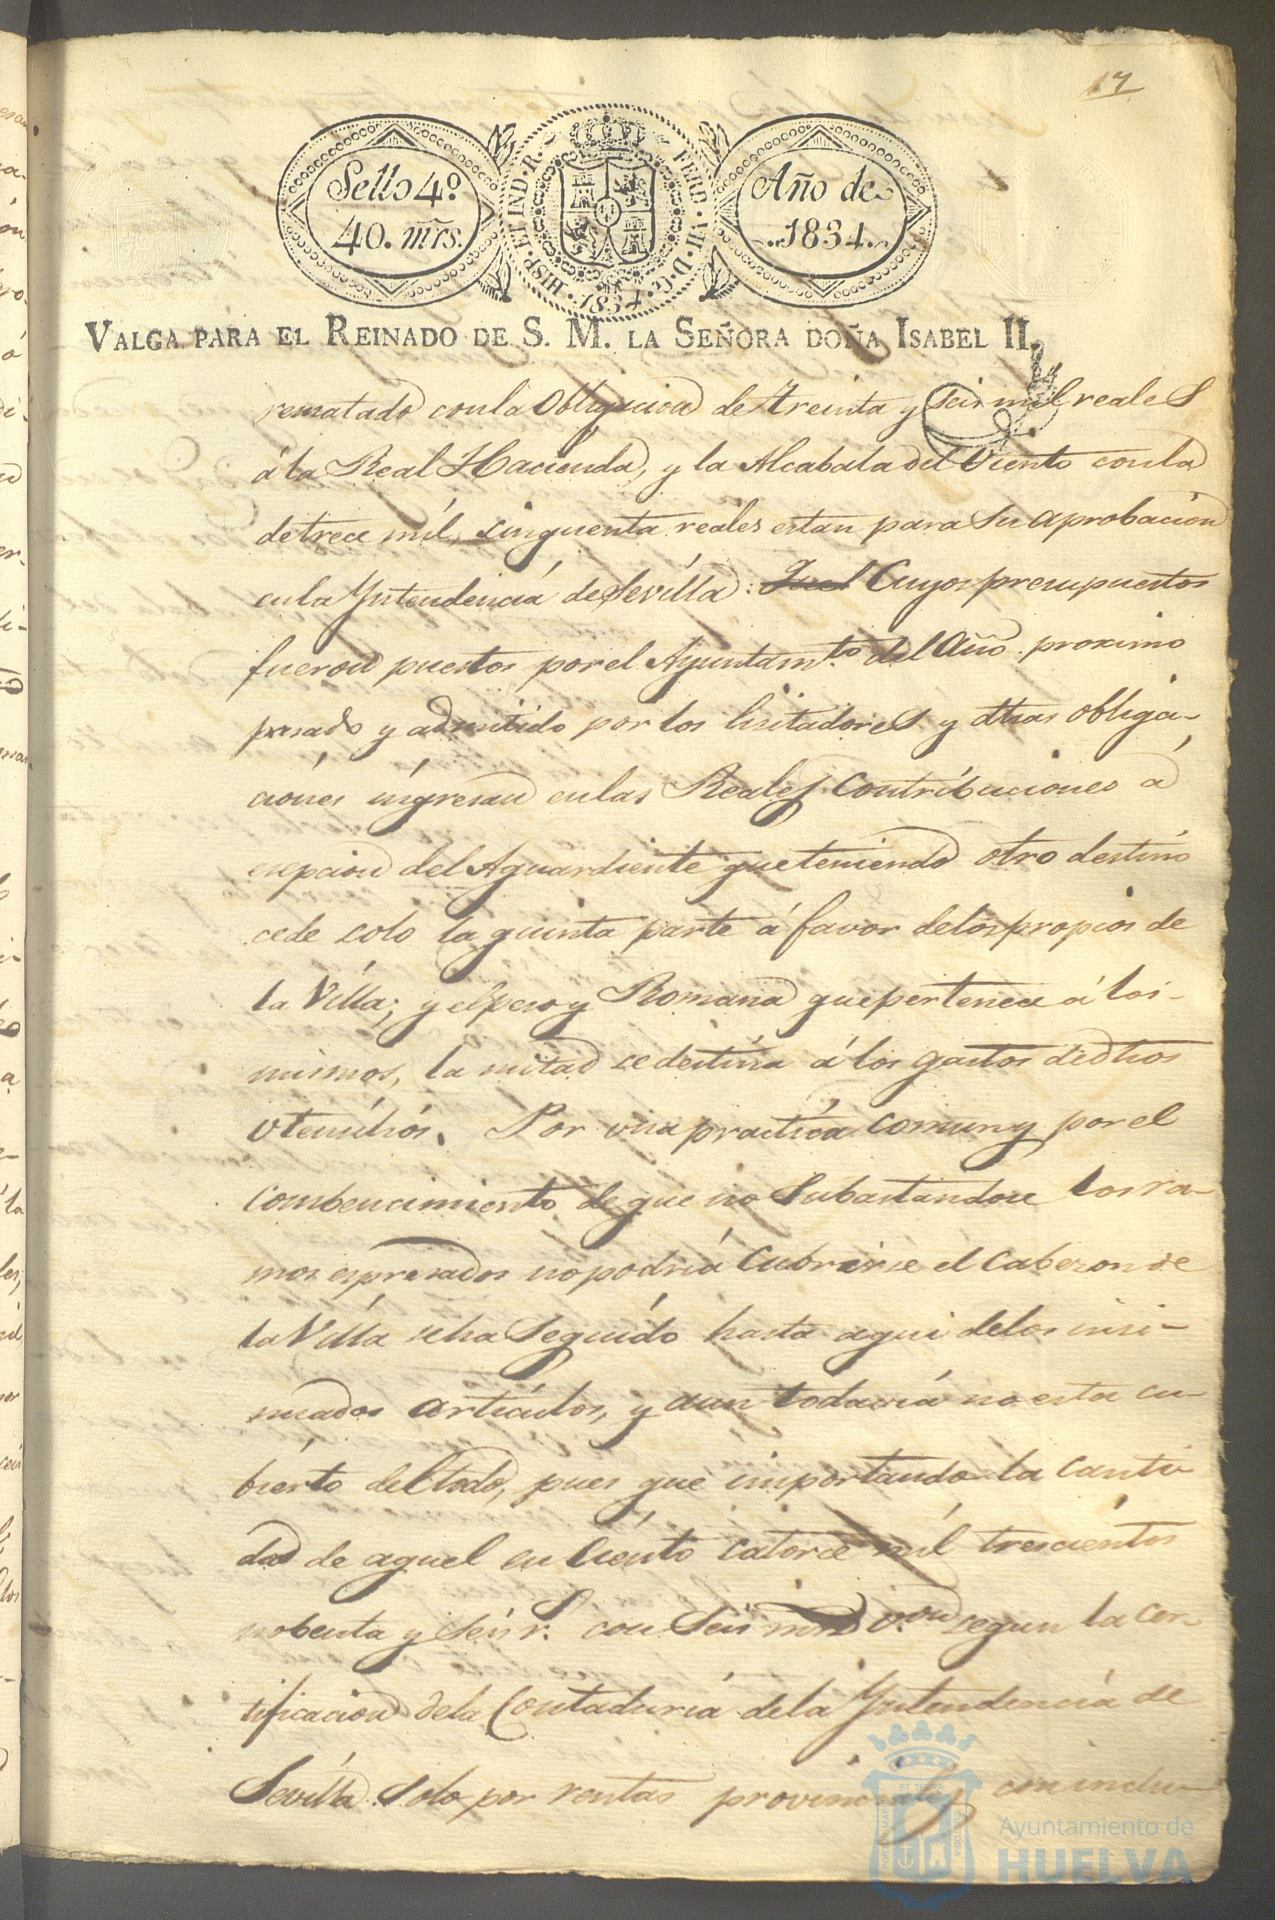 17
Sello 4º
40. mrs.
HISP. ET IND. R.
FERD. VII. D. G.
1834
Año de
1834.
VALGA PARA EL REINADO DE S. M. LA SEÑORA DOÑA ISABEL II.
rematado con la Obligacion de treinta y seis mil reales
á la Real Hacienda, y la Alcabala del Viento con la
de trece mil, cinquenta reales estan para su aprobacion
en la Yntendencia de Sevilla: Cuyos presupuestos
fueron puestos por el Ayuntamto. del Año proximo
pasado y admitido por los lisitadores y dhas obliga-
ciones ingresan en las Reales Contribuciones á
esepcion del Aguardiente que teniendo otro destino
cede solo la quinta parte á favor de los propios de
la Villa; y el peso y Romana que pertenece á los
mismos, la mitad se destina á los gastos de dhos
utencilios. Por una practica comun y por el
combencimiento de que no Subastandose los ra-
mos espresados no podria Cubrirse el Cabezon de
la Villa se ha Seguido hasta aqui de los insi-
nuados articulos, y aun todavia no esta cu-
bierto del todo, pues que importando la canti-
dad de aquel en Ciento catorce mil trescientos
nobenta y seis r. con Seis mrs von segun la cer-
tificacion de la Contaduria de la Yntendencia de
Sevilla solo por rentas provinciales con inclu-
Ayuntamiento de
HUELVA